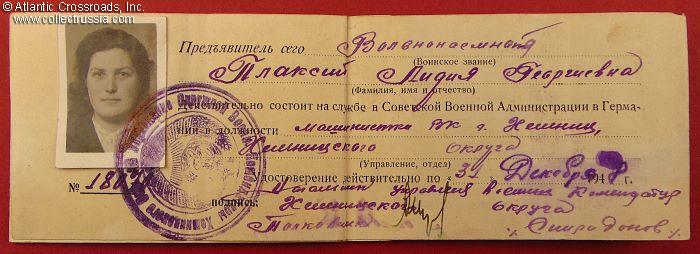 © Atlantic Crossroads, Inc.
www.collectrussia.com
Предъявитель сего Вольнонаемная
(Воинское звание)
Плаксий Лидия Георгиевна
(Фамилия, имя и отчество)
Действительно состоит на службе в Советской Военной Администрации в Герма-
нии в должности машинистка ВК г. Хемниц,
Хемницского Округа
(Управление, отдел)
Удостоверение действительно по « 31 Декабря 194 г.
№
управления Военной Комендатуры
подпись: Хемницского Округа
Полковник Спиридонов